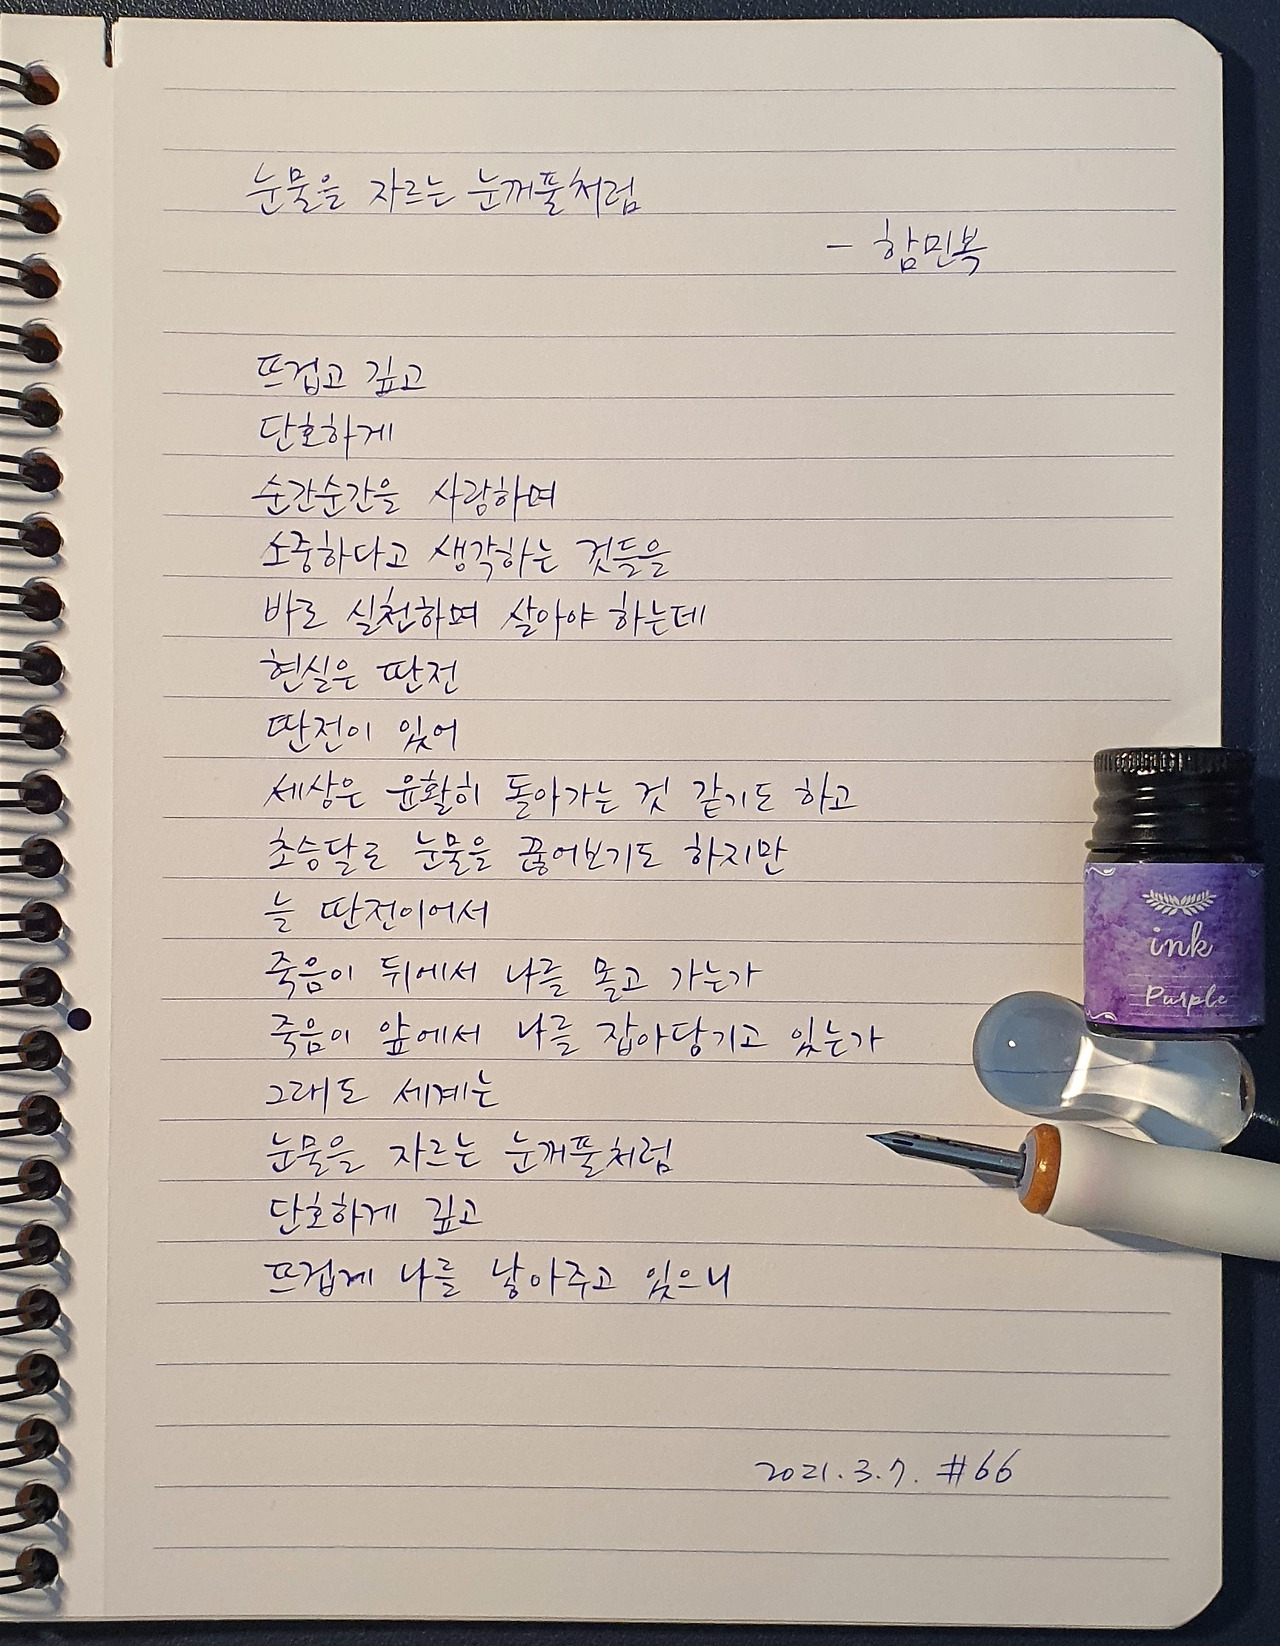 눈물을 자르는 눈꺼풀처럼
- 함민복
뜨겁고 깊고
단호하게
순간순간을 사람하며
소중하다고 생각하는 것들을
바로 실천하며 살아야 하는데
현실은 딴전
딴전이 있어
세상은 윤활히 돌아가는 것 같기도 하고
초승달로 눈물을 끊어보기도 하지만
늘 딴전이어서
죽음이 뒤에서 나를 몰고 가는가
죽음이 앞에서 나를 잡아당기고 있는가
그래도 세계는
눈물을 자르는 눈꺼풀처럼
단호하게 깊고
뜨겁게 나를 낳아주고 있으니
2021.3.7. #66
ink
Purple